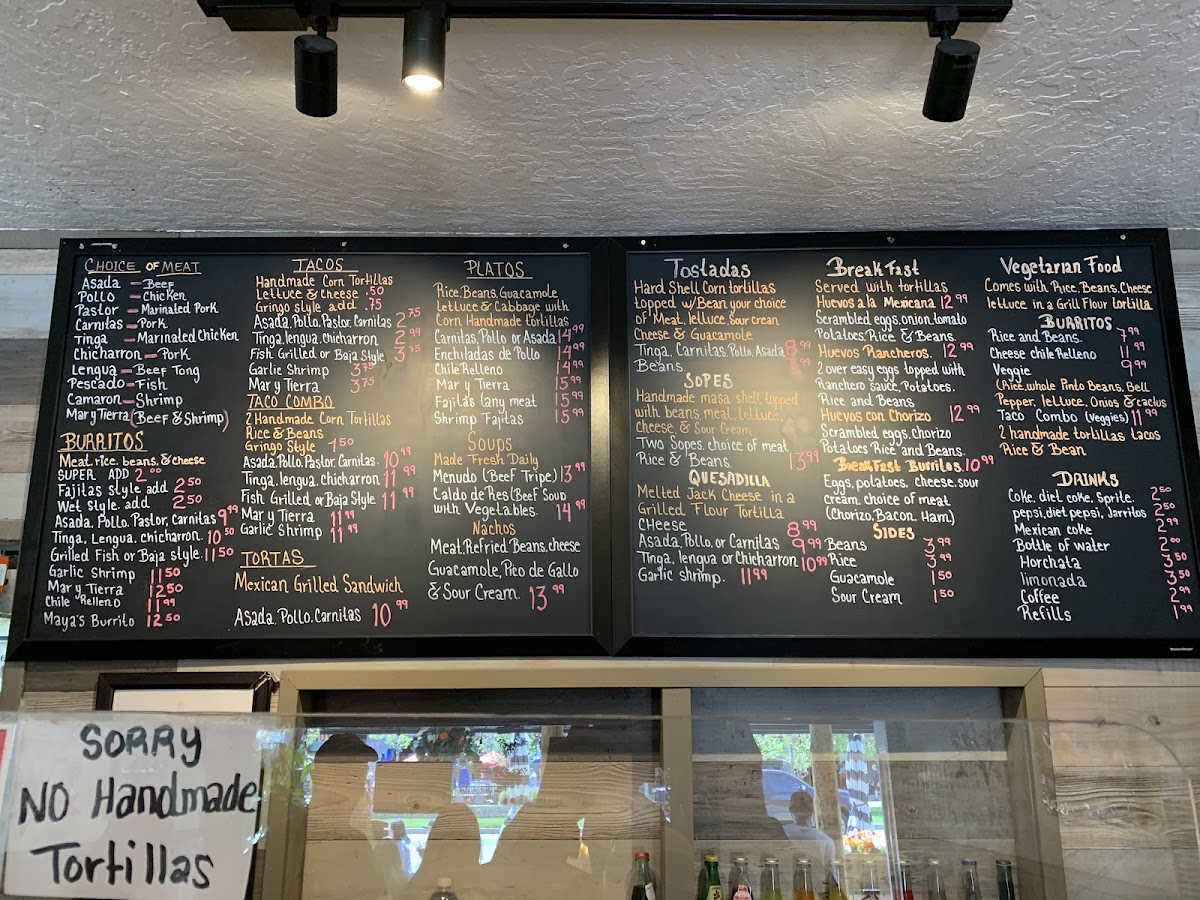 CHOICE OF MEAT
Asada - Beef
Pollo - Chicken
Pastor - Marinated Pork
Carnitas - Pork
Tinga - Marinated Chicken
Chicharron - Pork
Lengua - Beef Tong
Pescado - Fish
Camaron - Shrimp
Mar y Tierra (Beef & Shrimp)
BURRITOS
Meat, rice, beans, & cheese
SUPER ADD 2.00
Fajitas style add 2.50
Wet style. add 2.50
Asada, Pollo, Pastor, carnitas 9.99
Tinga, Lengua, chicharron 10.50
Grilled Fish or Baja style. 11.50
Garlic Shrimp 11.50
Mar y Tierra 12.50
Chile Relleno 11.99
Maya's Burrito 12.50
TACOS
Handmade Corn Tortillas
Lettuce & Cheese .50
Gringo style add .75
Asada, Pollo, Pastor, Carnitas 2.75
Tinga, lengua, chicharron 2.99
Fish Grilled or Baja Style 3.75
Garlic Shrimp 3.75
Mar y Tierra 3.75
TACO COMBO
2 Handmade Corn Tortillas
Rice & Beans
Gringo Style 1.50
Asada, Pollo, Pastor, Carnitas. 10.99
Tinga, lengua, chicharron 11.99
Fish Grilled or Baja Style 11.99
Mar y Tierra 11.99
Garlic Shrimp 11.99
TORTAS
Mexican Grilled Sandwich
Asada, Pollo, Carnitas 10.99
PLATOS
Rice, Beans, Guacamole
Lettuce & Cabbage with
Corn Handmade tortillas
Carnitas, Pollo or Asada 14.99
Enchiladas de Pollo 14.99
Chile Relleno 14.99
Mar y Tierra 15.99
Fajitas (any meat 15.99
Shrimp Fajitas 15.99
Soups
Made Fresh Daily
Menudo (Beef Tripe) 13.99
Caldo de Res (Beef Soup
with Vegetables. 14.99
Nachos
Meat, Refried Beans, cheese
Guacamole, Pico de Gallo
& Sour Cream 13.99
Tostadas
Hard Shell Corn tortillas
topped w/Bean your choice
of Meat, lettuce, sour crean
Cheese & Guacamole
Tinga, Carnitas, Pollo, Asada 8.99
Beans.
SOPES
Handmade masa shell, topped
with beans, meat, lettuce,
cheese, & Sour Cream
Two Sopes, choice of meat
Rice & Beans. 13.99
QUESADILLA
Melted Jack Cheese in a
Grilled Flour Tortilla
Cheese 8.99
Asada, Pollo, or Carnitas 9.99
Tinga, lengua or Chicharron 10.99
Garlic shrimp. 11.99
BreakFast
Served with tortillas
Huevos a la Mexicana 12.99
Scrambled eggs, onion, tomato
Potatoes, Rice & Beans
Huevos Rancheros. 12.99
2 over easy eggs topped with
Ranchero sauce, Potatoes,
Rice and Beans
Huevos con Chorizo 12.99
Scrambled, eggs, chorizo
Potatoes Rice and Beans.
BreakFast Burritos. 10.99
Eggs, potatoes, cheese, sour
cream, choice of meat
(Chorizo, Bacon, Ham)
SIDES
Beans 3.99
Rice 3.99
Guacamole 1.50
Sour Cream 1.50
Vegetarian Food
Comes with Rice, Beans, Cheese
lettuce in a Grill Flour tortilla
BURRITOS
Rice and Beans. 7.99
Cheese chile Relleno 11.99
Veggie 9.99
(Rice, whole Pinto Beans, Bell
Pepper, lettuce, Onios & cactus
Taco Combo (veggies) 11.99
2 handmade tortillas tacos
Rice & Bean
DRINKS
Coke, diet coke, Sprite. 2.50
pepsi, diet pepsi, Jarritos 2.50
Mexican coke 2.99
Bottle of water 2.00
Horchata 3.50
limonada 3.50
Coffee 2.99
Refills 1.99
SORRY
NO Handmade
Tortillas